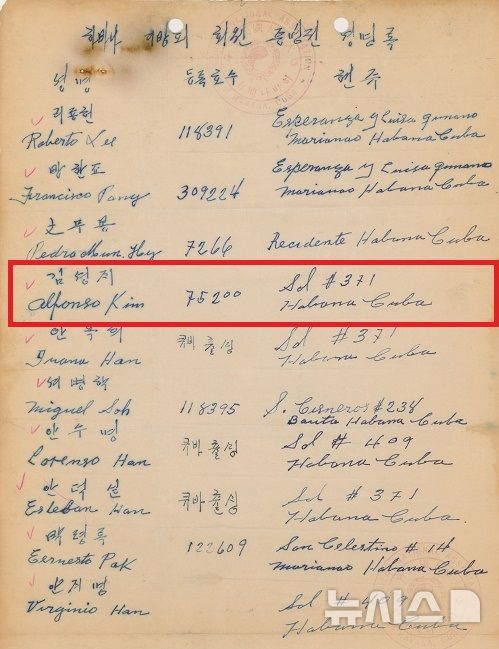 하바나 지방회 회원 증명권 성명록
성명 등록호수 현주
리표현
Roberto Lee 118391 Esperanza y Luisa
Marianao Habana Cuba
방환표
Francisco Pang 309224 Esperanza y Luisa
Marianao Habana Cuba
Pedro 7266 Recidente Habana Cuba
김성지 Sol # 371
Alfonso Kim 75200 Habana Cuba
안옥희 쿠바 출싱 Sol # 371
Juana Han Habana Cuba
서병학
Miguel Soh 118395 S. Cisneros # 238
Habana Cuba
안수명 쿠바 출싱 Sol # 409
Lorenzo Han Habana Cuba
안덕설 쿠바 출싱 Sol # 371
Esteban Han Habana Cuba
백령록 San Celestino # 14
Eernesto Pak 122609 Marianao Habana Cuba
안지명 Sol # 409
Virginio Han Habana Cuba
뉴시스